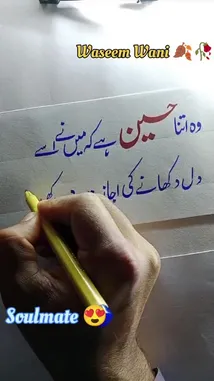 Waseem Wani 🍂🥀
وہ اتنا حسین ہے کہ میں نے اسے
دل دکھانے کی اجازت دے رکھی
Soulmate 😍